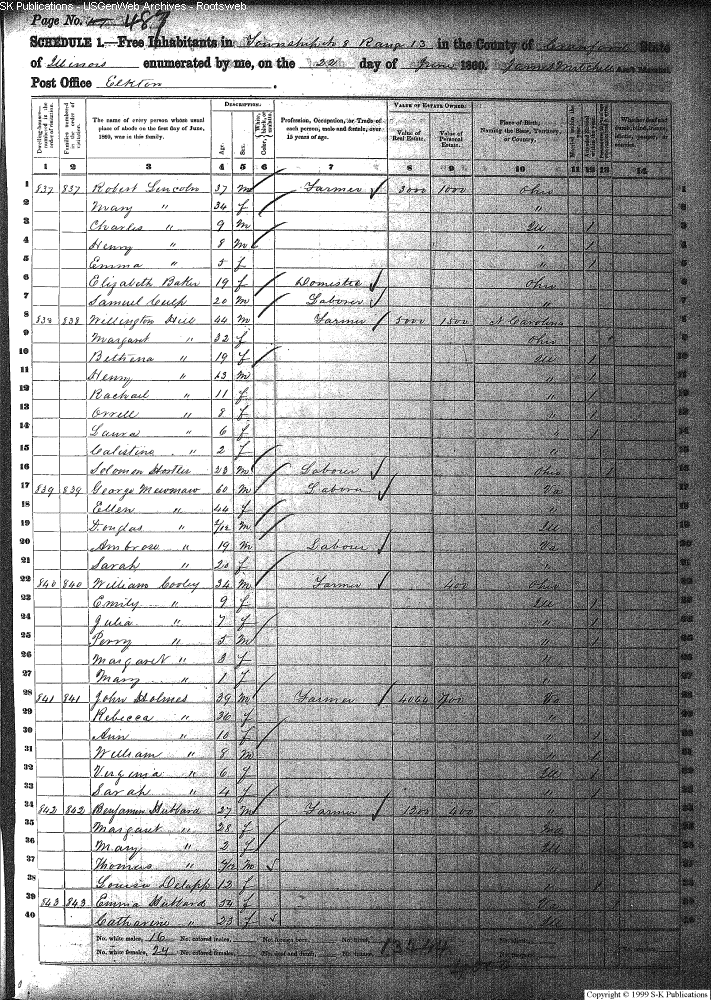 SK Publications - USGenWeb Archives - Rootsweb
Page No. 487
SCHEDULE 1.—Free Inhabitants in Township No 8 Rang 13 in the County of Crawford State
of Illinois enumerated by me, on the 22 day of June 1860. James Mitchell Ass't Marshal.
Post Office Elkton
Dwelling-houses—numbered in the order of visitation.
Families numbered in the order of visitation.
The name of every person whose usual place of abode on the first day of June, 1860, was in this family.
DESCRIPTION.
Age.
Sex.
Color, White, black, or mulatto.
Profession, Occupation, or Trade of each person, male and female, over 15 years of age.
VALUE OF ESTATE OWNED.
Value of Real Estate.
Value of Personal Estate.
Place of Birth, Naming the State, Territory, or Country.
Whether deaf and dumb, blind, insane, idiotic, pauper, or convict.
1 2 3 4 5 6 7 8 9 10 11 12 13 14
1 837 837 Robert Lincoln 37 m Farmer 3000 1000 Ohio 1
2 Mary " 34 f " 2
3 Charles " 9 m Ill 1 3
4 Henry " 8 m " 1 4
5 Emma " 5 f " 1 5
6 Elizabeth Baker 19 f Domestic Ohio 6
7 Samuel Culp 20 m Laborer " 7
8 838 838 Wellington Hill 44 m Farmer 5000 1500 N Carolina 8
9 Margaret " 32 f Ohio 9
10 Bethena " 19 f Ill 1 10
11 Henry " 13 m " 1 11
12 Rachael " 11 f " 1 12
13 Orrell " 8 f " 1 13
14 Laura " 6 f " 1 14
15 Calistina " 2 f " 15
16 Solomon 23 m Laborer Ohio 16
17 839 839 George Newman 60 m Laborer Va 17
18 Ellen " 44 f " 18
19 Douglas " /12 m Ill 19
20 Ambrose " 19 m Labour Va 20
21 Sarah " 20 f 21
22 840 840 William Cooley 34 m Farmer 400 Ohio 22
23 Emily " 9 f Ill 1 23
24 Julia " 7 f " 1 24
25 Perry " 5 m " 1 25
26 Margaret " 3 f 26
27 Mary " 1 f 27
28 841 841 John Holmes 39 m Farmer 4000 700 28
29 Rebecca " 36 f " 29
30 Ann " 10 f 1 30
31 William " 8 m " 1 31
32 Virginia " 6 f Ill 1 32
33 Sarah " 4 f " 33
34 842 842 Benjamin Hubbard 27 m Farmer 1200 400 34
35 Margaret " 28 f 35
36 Mary " 2 f Ill 36
37 Thomas " /12 m " 37
38 Louisa Delapp 12 f " 1 38
39 843 843 Emma Hubbard 54 f 39
40 Catharine " 23 f Ill 40
No. white males, 16 No. colored males, No. foreign born, No. blind,
No. white females, 24 No. colored females, No. deaf and dumb, No. insane,
Copyright © 1999 S-K Publications